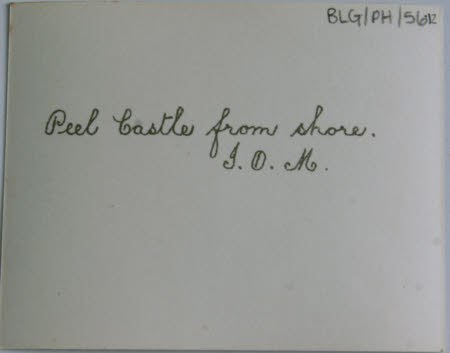 BLG/PH/5612
Peel Castle from shore.
I. O. M.